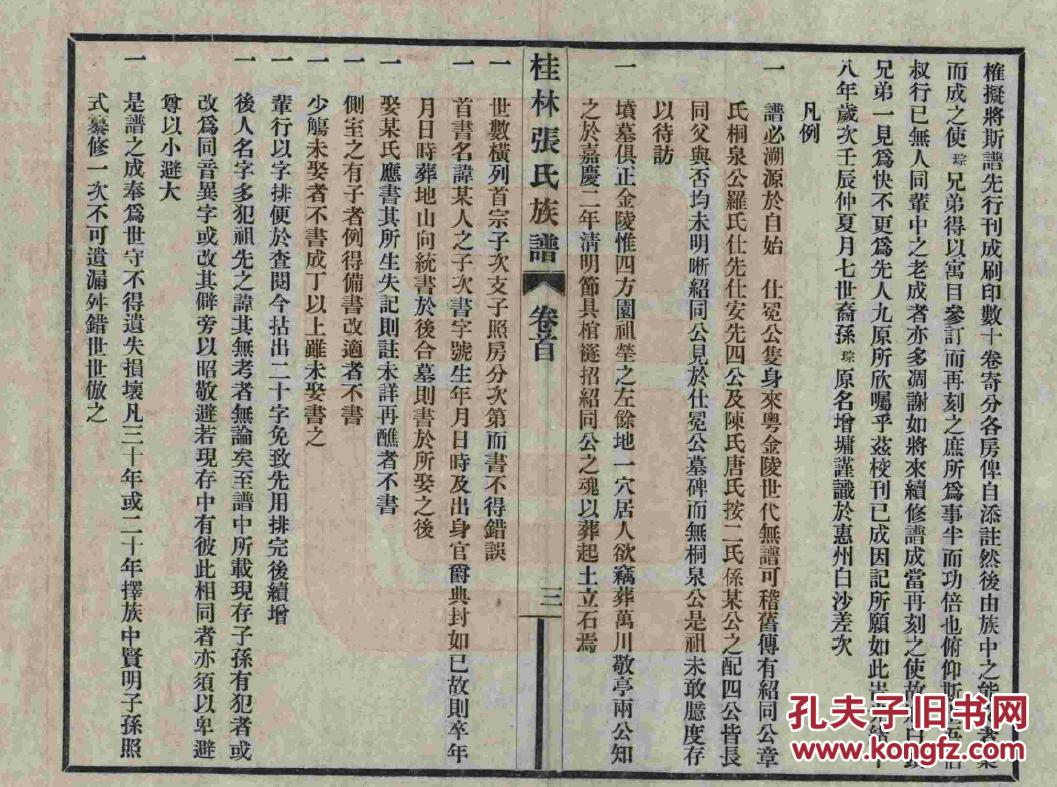 榷擬將斯譜先行刊成刷印數十卷寄分各房俾自添註然後由族中之能
而成之使琮兄弟得以寓目參訂而再刻之庶所爲事半而功倍也俯仰斯
叔行已無人同輩中之老成者亦多凋謝如將來續修譜成當再刻之使故
兄弟一見爲快不更爲先人九原所欣囑乎茲棱刊已成因記所願如此
八年歲次壬辰仲夏月七世裔孫琮原名增墉謹識於惠州白沙差次
凡例
一 譜必溯源於自始 仕冕公隻身來粵金陵世代無譜可稽舊傳有紹同公章
氏桐泉公羅氏仕先仕安先四公及陳氏唐氏按二氏係某公之配四公皆長
同父與否均未明晰紹同公見於仕冕公墓碑而無桐泉公是祖未敢臆度存
以待訪
一 墳墓俱正金陵惟四方園祖塋之左餘地一穴居人欲竊葬萬川敬亭兩公知
之於嘉慶二年清明節具棺襚招紹同公之魂以葬起土立石焉
桂林張氏族譜 卷首 三
一 世數橫列首宗子次支子照房分次第而書不得錯誤
一 首書名諱某人之子次書字號生年月日時及出身官爵典封如已故則卒年
月日時葬地山向統書於後合墓則書於所娶之後
一 娶某氏應書其所生失記則註未詳再醮者不書
一 側室之有子者例得備書改適者不書
一 少觴未娶者不書成丁以上雖未娶書之
一 輩行以字排便於查閱今拈出二十字免致先用排完後續增
一 後人名字多犯祖先之諱其無考者無論矣至譜中所載現存子孫有犯者或
改爲同音異字或改其僻旁以昭敬避若現存中有彼此相同者亦須以卑避
尊以小避大
一 是譜之成奉爲世守不得遺失損壞凡三十年或二十年擇族中賢明子孫照
式纂修一次不可遺漏舛錯世世倣之
孔夫子旧书网
www.kongfz.com